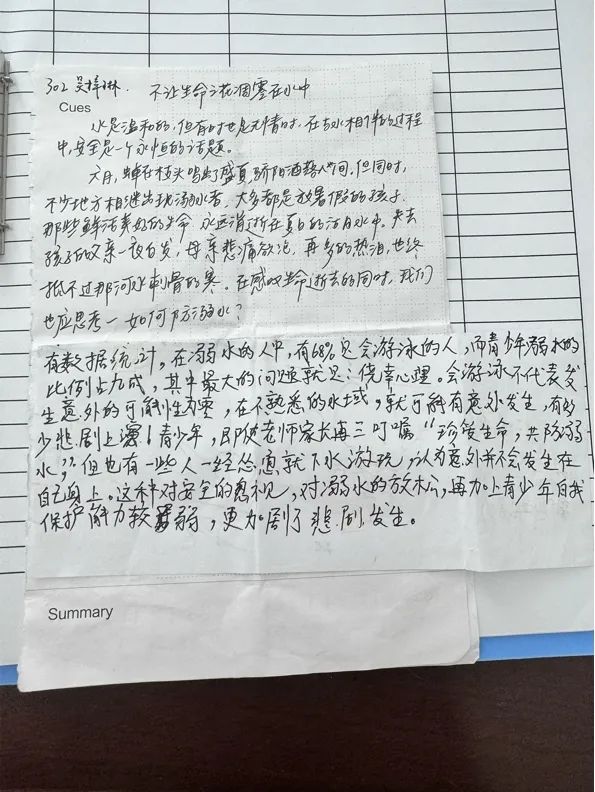 302 吴梓琳. 不让生命之花凋零在水中
Cues
水是温和的,但有时也是无情时.在与水相伴的过程
中,安全是一个永恒的话题。
六月,蝉在枝头唱响盛夏,骄阳洒热人间.但同时,
不少地方相继出现溺水者.大多都是放暑假的孩子.
那些鲜活美好的生命,永远消逝在夏日的河水中.失去
孩子的父亲一夜白发,母亲悲痛欲绝.再多的热泪,也终
抵不过那河水刺骨的寒.在感叹生命逝去的同时,我们
也应思考—如何防溺水?
有数据统计,在溺水的人中,有68%是会游泳的人,而青少年溺水的
比例占九成,其中最大的问题就是:侥幸心理。会游泳不代表发
生意外的可能性为零,在不熟悉的水域,就可能有意外发生,有多
少悲剧上演!青少年,即使老师家长再三叮嘱“珍爱生命,共防溺
水”,但也有一些人一经怂恿就下水游玩,认为意外并不会发生在
自己身上。这种对安全的忽视,对溺水的放松,再加上青少年自我
保护能力较弱,更加剧了悲剧发生。
Summary